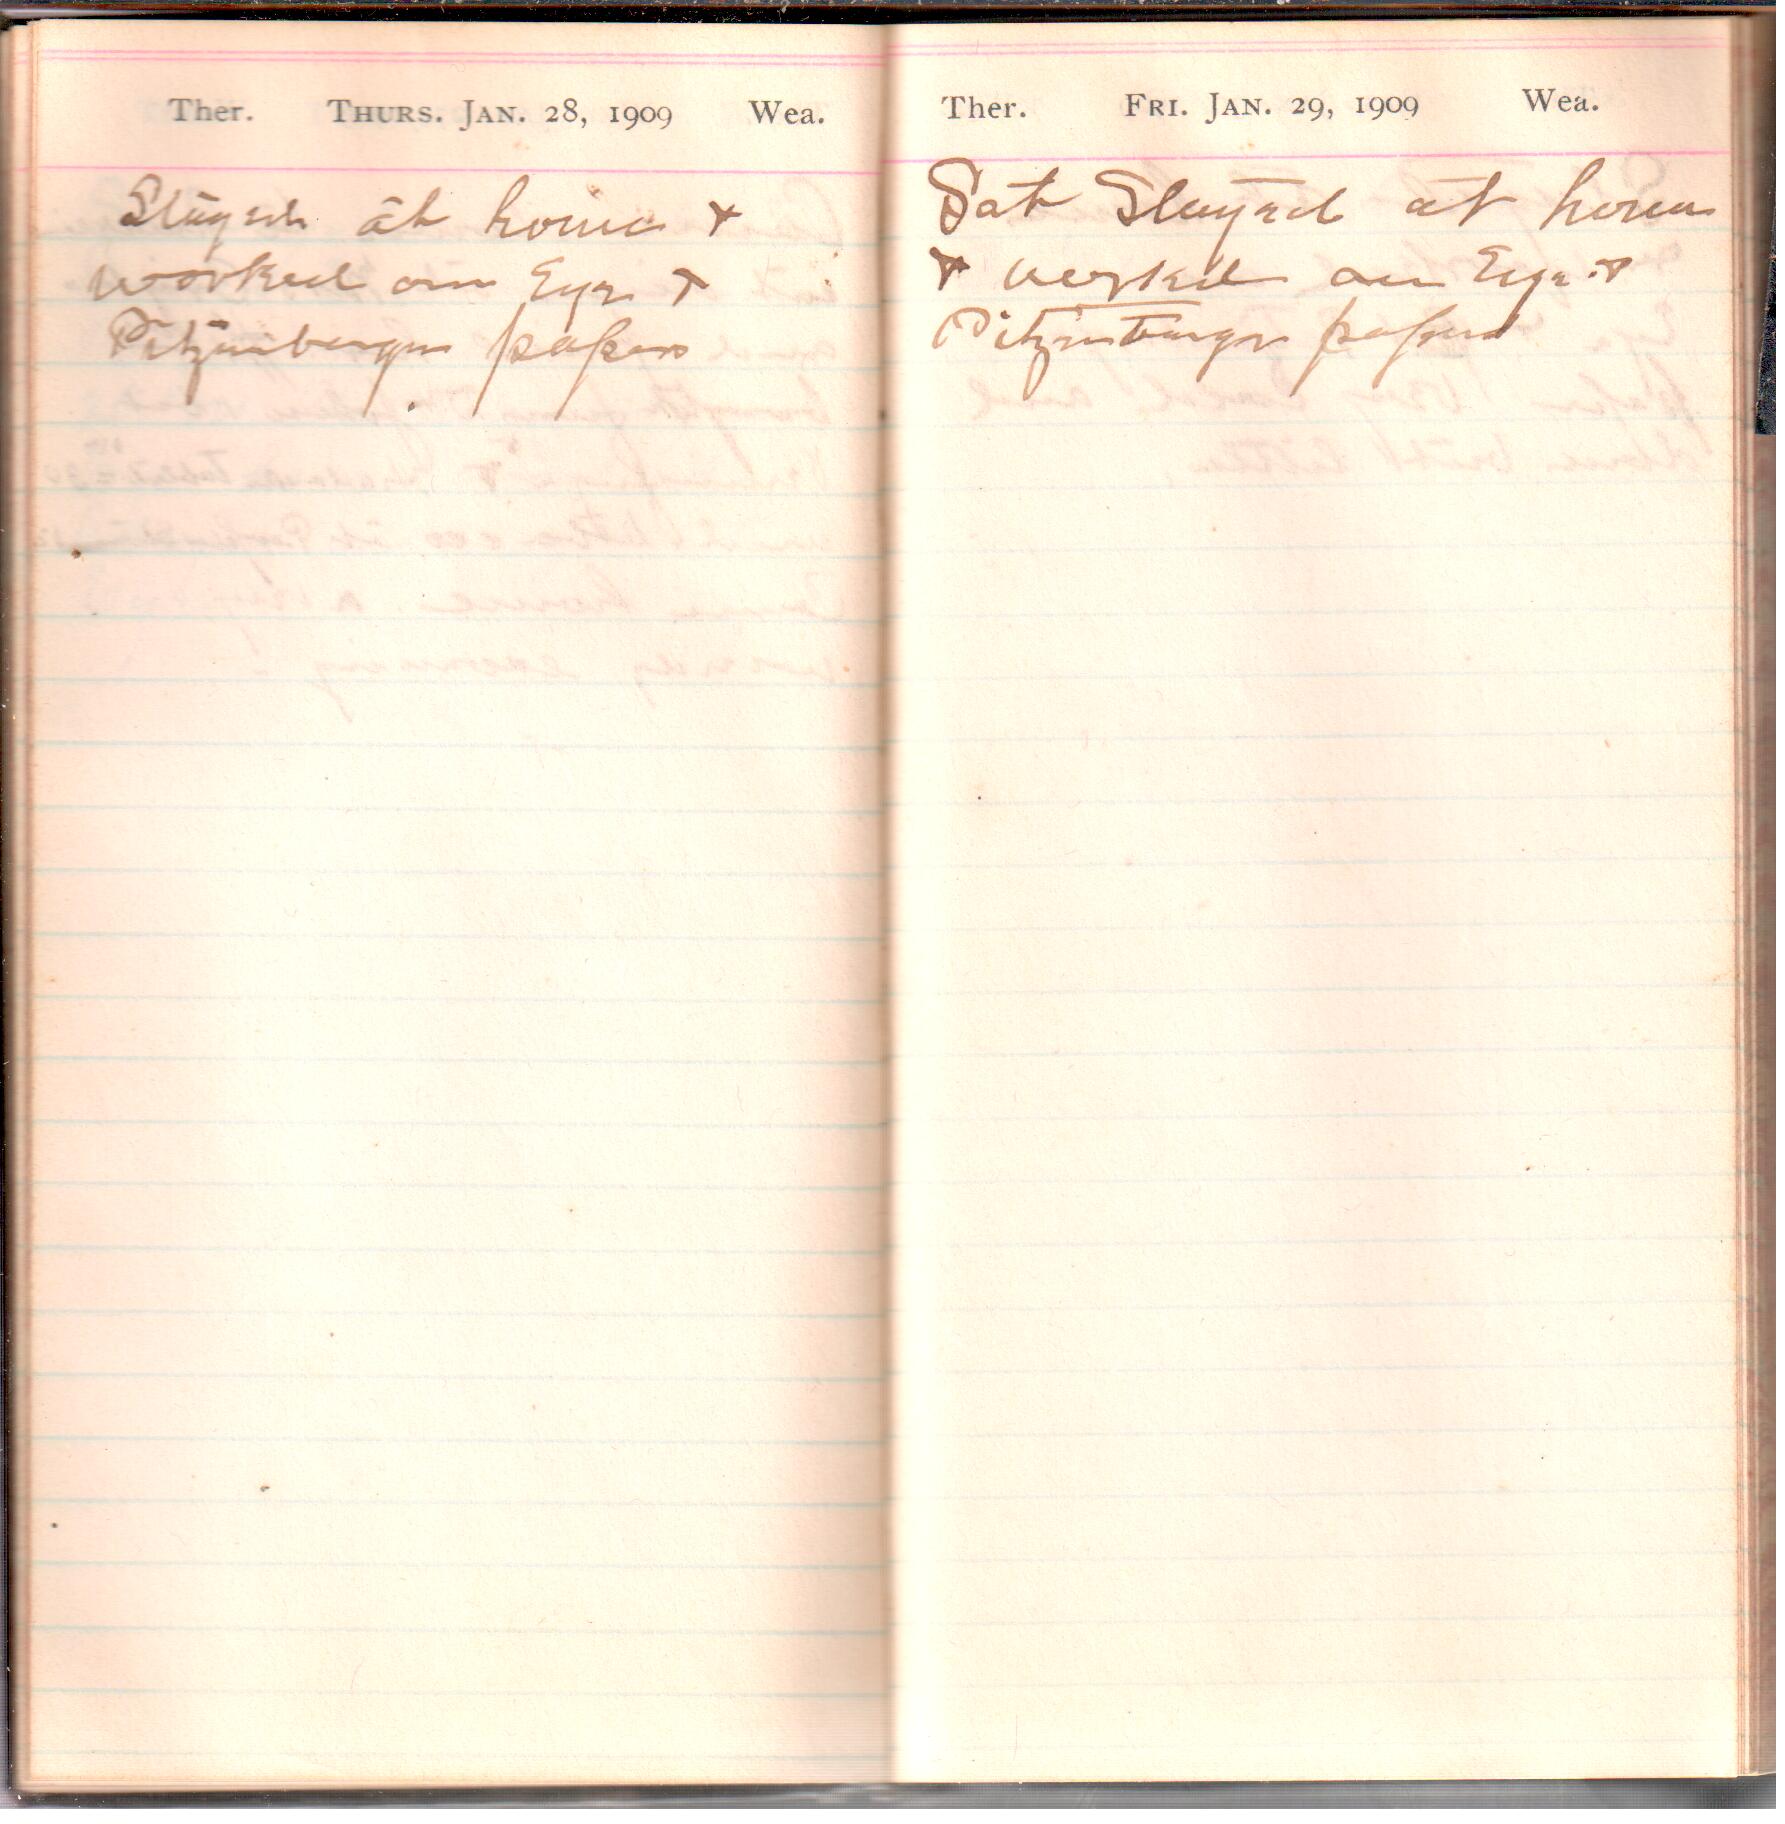 Ther. Thurs. Jan. 28, 1909 Wea.
Stayed at home &
worked on Eye &
Pitzenberger papers
Ther. Fri. Jan. 29, 1909 Wea.
Sat Stayed at home
& worked on Eye &
Pitzenberger papers